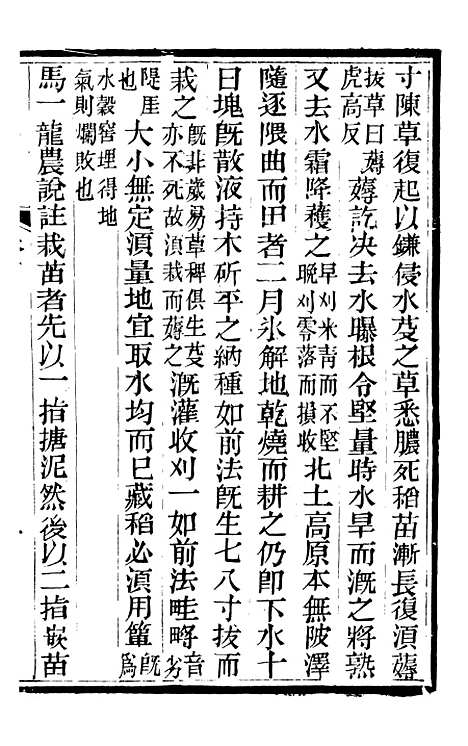 寸陳草復起以鎌侵水芟之草悉膿死稻苗漸長復湏薅
拔草曰薅
虎高反
薅訖决去水曝根令堅量時水旱而溉之將熟
又去水霜降穫之
早刈米青而不堅
晚刈零落而損收
北土高原本無陂澤
隨逐隈曲而田者二月氷解地乾燒而耕之仍卽下水十
日塊旣散液持木斫平之納種如前法旣生七八寸拔而
栽之
旣非歲易草稗俱生芟
亦不死故湏栽而薅之
溉灌收刈一如前法畦畤
音
劣
隄厓
也
大小無定湏量地宜取水均而已藏稻必湏用簞
旣
爲
水穀窖埋得地
氣則爛敗也
馬一龍農說註栽苗者先以一指搪泥然後以二指嵌苗